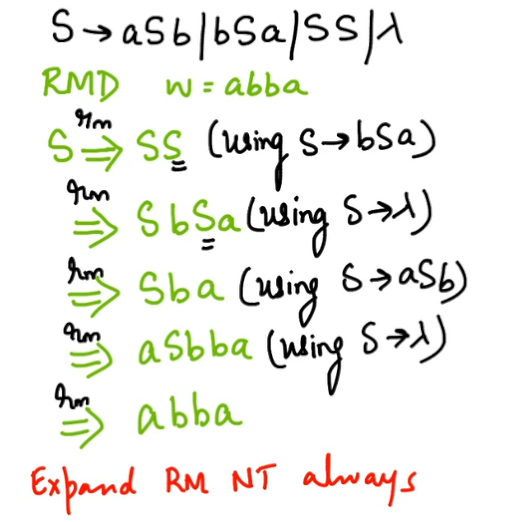 S → aSb|bSa|SS|λ
RMD w = abba
S rm⇒ SS (using S→bSa)
rm⇒ SbSa (using S→λ)
rm⇒ Sba (using S→aSb)
rm⇒ aSbba (using S→λ)
rm⇒ abba
Expand RM NT always